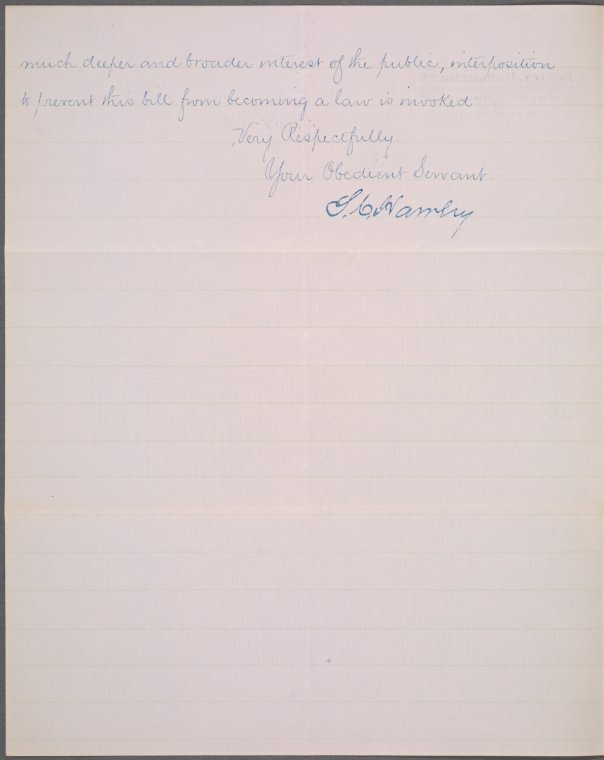 much deeper and broader interest of the public, interposition
to prevent this bill from becoming a law is invoked
Very Respectfully.
Your Obedient Servant.